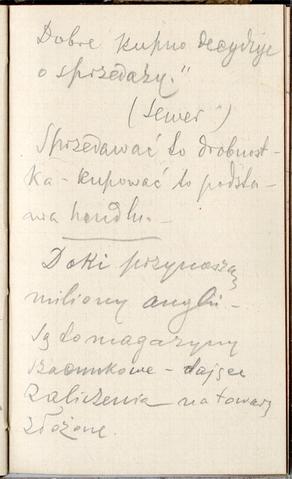 Dobre kupno decyduje
o sprzedaży."
(Lewer")
Sprzedawać to drobnost-
ka - kupować to podsta-
wa handlu. -
Doki przynoszą
miliony anglii -
Są to magazyny
szacunkowe - dające
zaliczenia na towary
złożone.